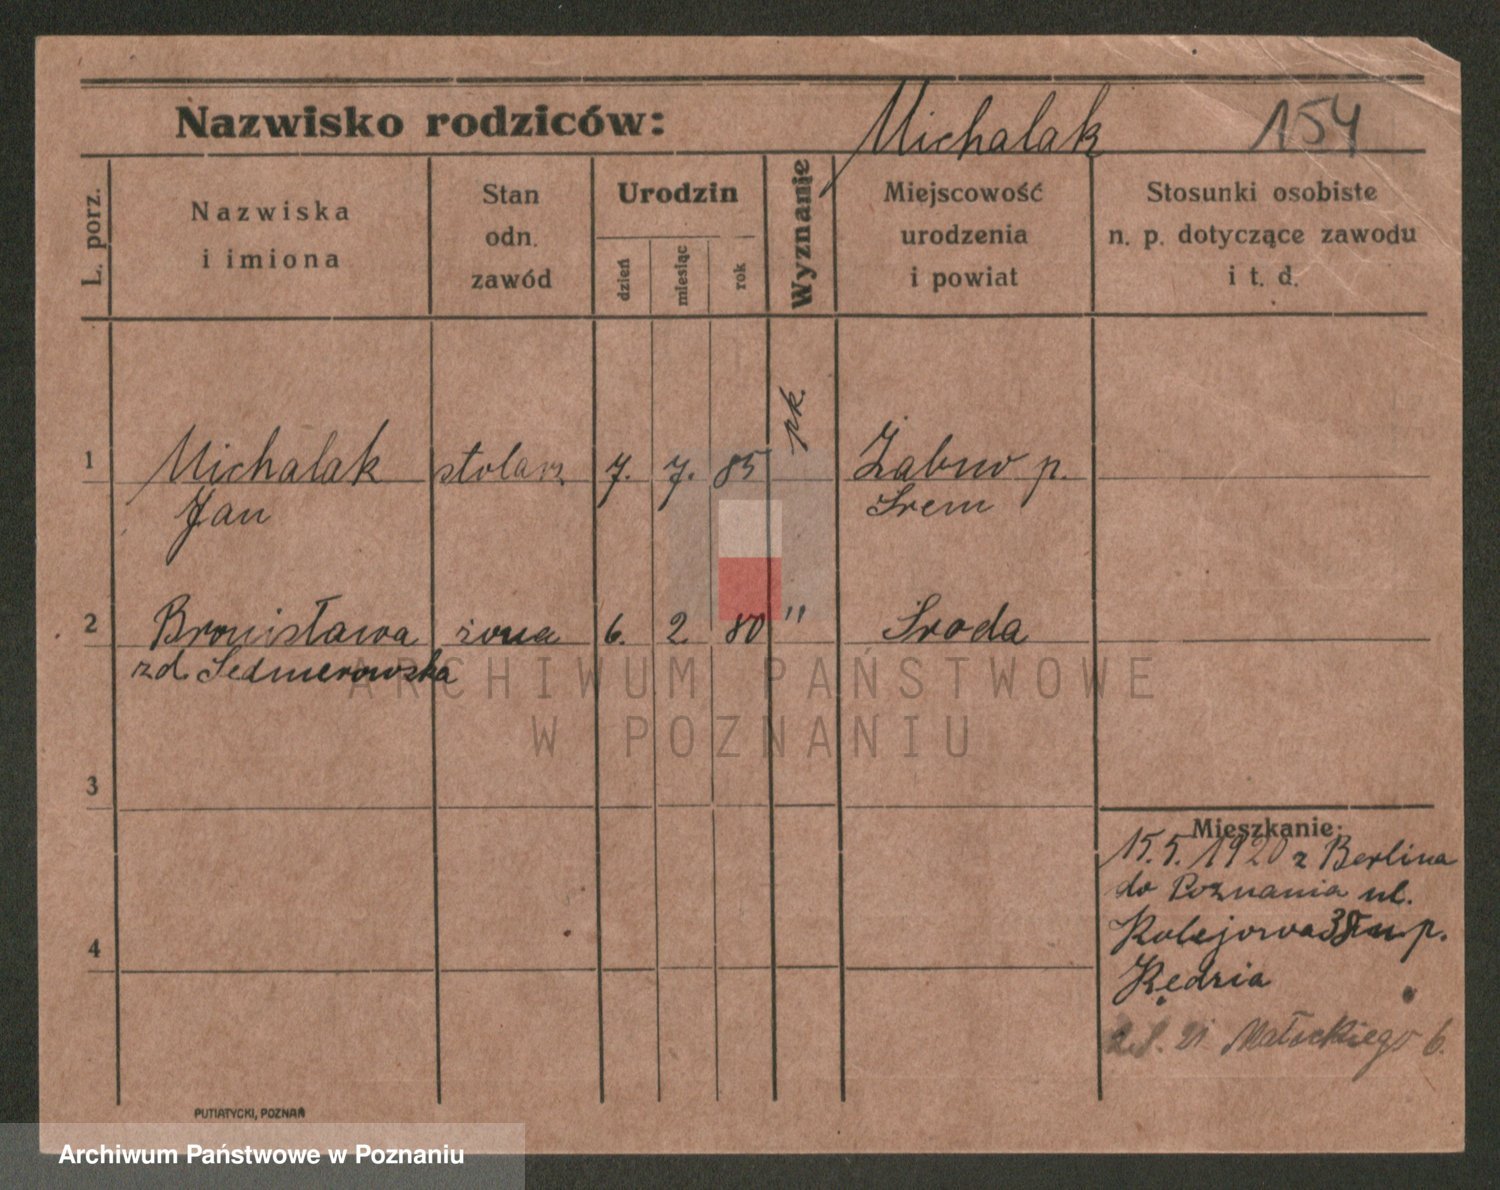 Nazwisko rodziców: Michalak 154
L. porz.
Nazwiska
i imiona
Stan
odn.
zawód
Urodzin
dzień
miesiąc
rok
Wyznanie
Miejscowość
urodzenia
i powiat
Stosunki osobiste
n. p. dotyczące zawodu
i t. d.
1 Michalak stolarz 7. 7. 85 pk. Żabno p.
Jan Srem
2 Bronisława żona 6. 2. 80 " Sroda
zd. Sedmerowska
ARCHIWUM PAŃSTWOWE
W POZNANIU
3
Mieszkanie:
15.5. 1920 z Berlina
do Poznania ul.
Kolejowa 38 u p.
4
Kędzia
21 Małeckiego 6.
PUTIATYCKI, POZNAŃ
Archiwum Państwowe w Poznaniu